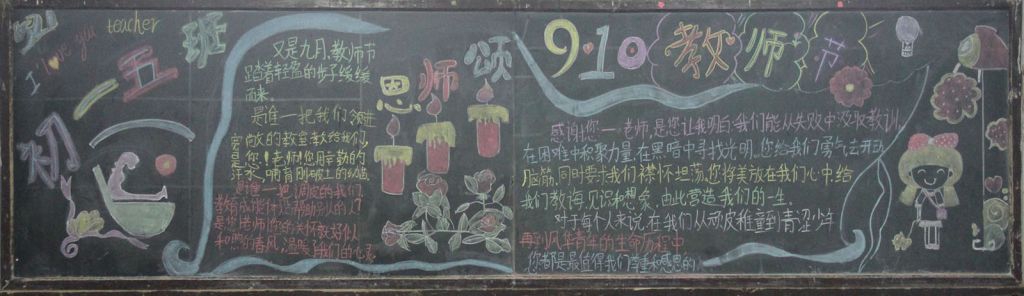 I love you teacher
初一五班
颂师恩
又是九月教师节
踏着轻盈的步子缓缓
而来
是谁一把我们领进
宽敞的教室教给我们
是您!老师!您用辛勤的
汗水,哺育刚破土的
是您老师您的关怀教好似
和煦的春风,温暖了我们的心
9.10教师节
感谢您——老师,是您让我明白我们能从失败中吸取教训,
在困难中积聚力量,在黑暗中寻找光明,您给我们勇气去开动
脑筋,同时要求我们襟怀坦荡,您将美放在我们心中给
我们教诲、见识和想象,由此营造我们的一生。
对于每个人来说,在我们从顽皮稚童到青涩少年
再到风华青年的生命历程中
您都是最值得我们尊重和感恩的